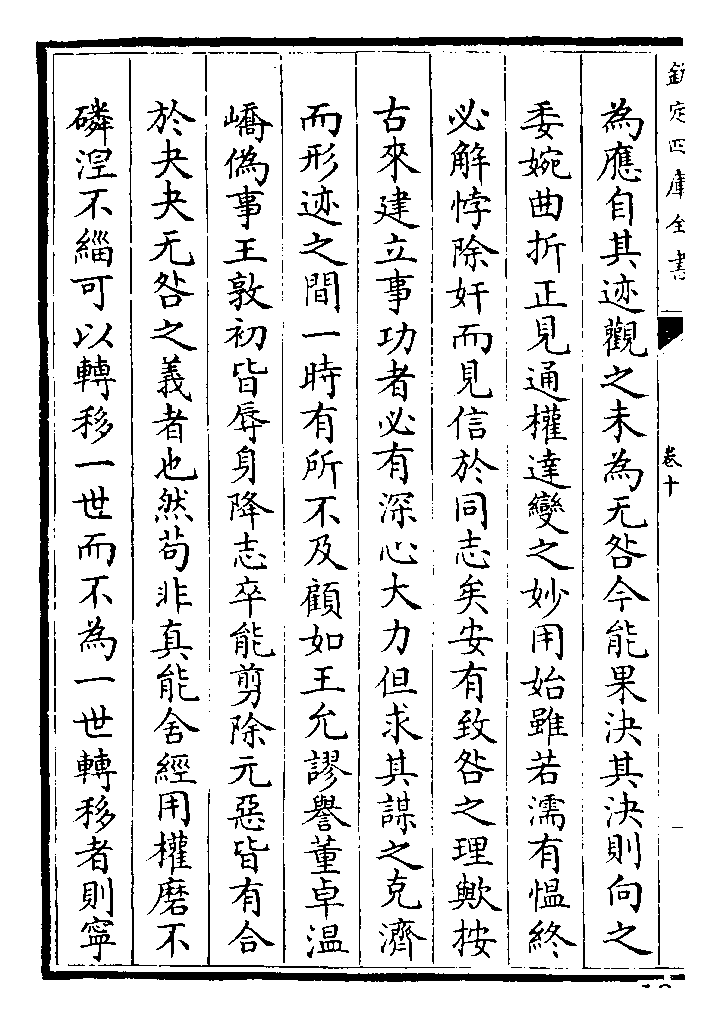 欽定四庫全書
卷十
為應自其迹觀之未為无咎今能果決其決則向之
委婉曲折正見通權達變之妙用始雖若濡有慍終
必解悖除奸而見信於同志矣安有致咎之理歟按
古來建立事功者必有深心大力但求其謀之克濟
而形迹之間一時有所不及顧如王允謬譽董卓溫
嶠偽事王敦初皆辱身降志卒能剪除元惡皆有合
於夬夬无咎之義者也然苟非真能舍經用權磨不
磷涅不緇可以轉移一世而不為一世轉移者則寧